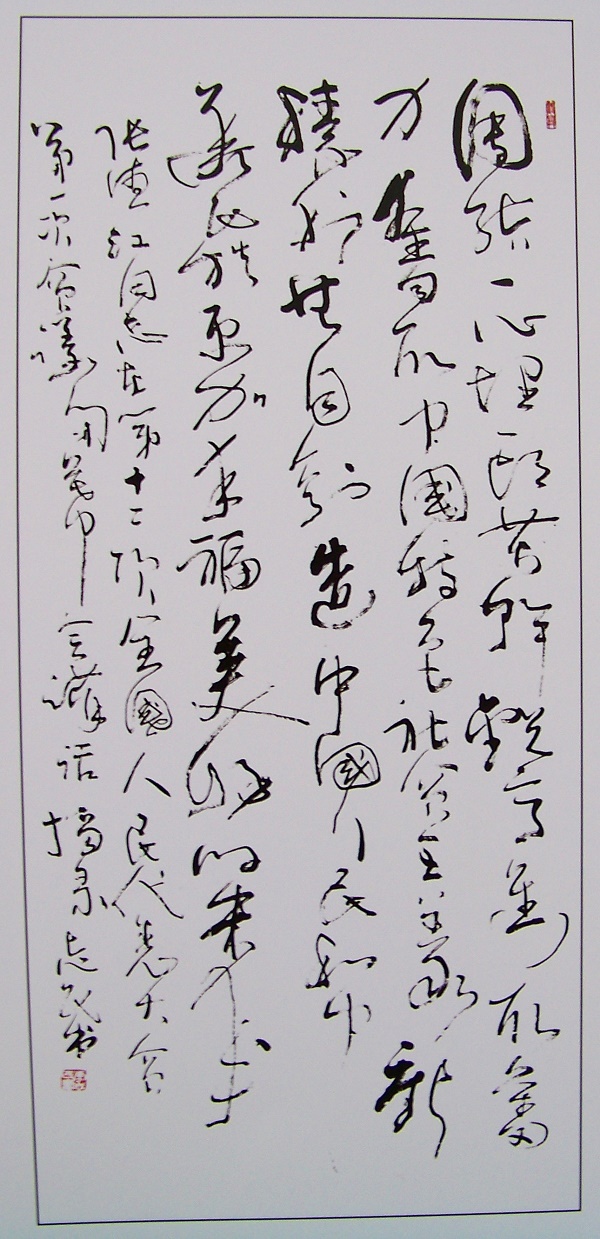 團結一心埋頭苦幹銳意進取奮
力奪取中國特色社會主義新
勝利共同創造中國人民和中
華民族更加幸福美好的未來
張德江同志在第十二屆全國人民代表大會
第一次會議閉幕講話摘录 志民書